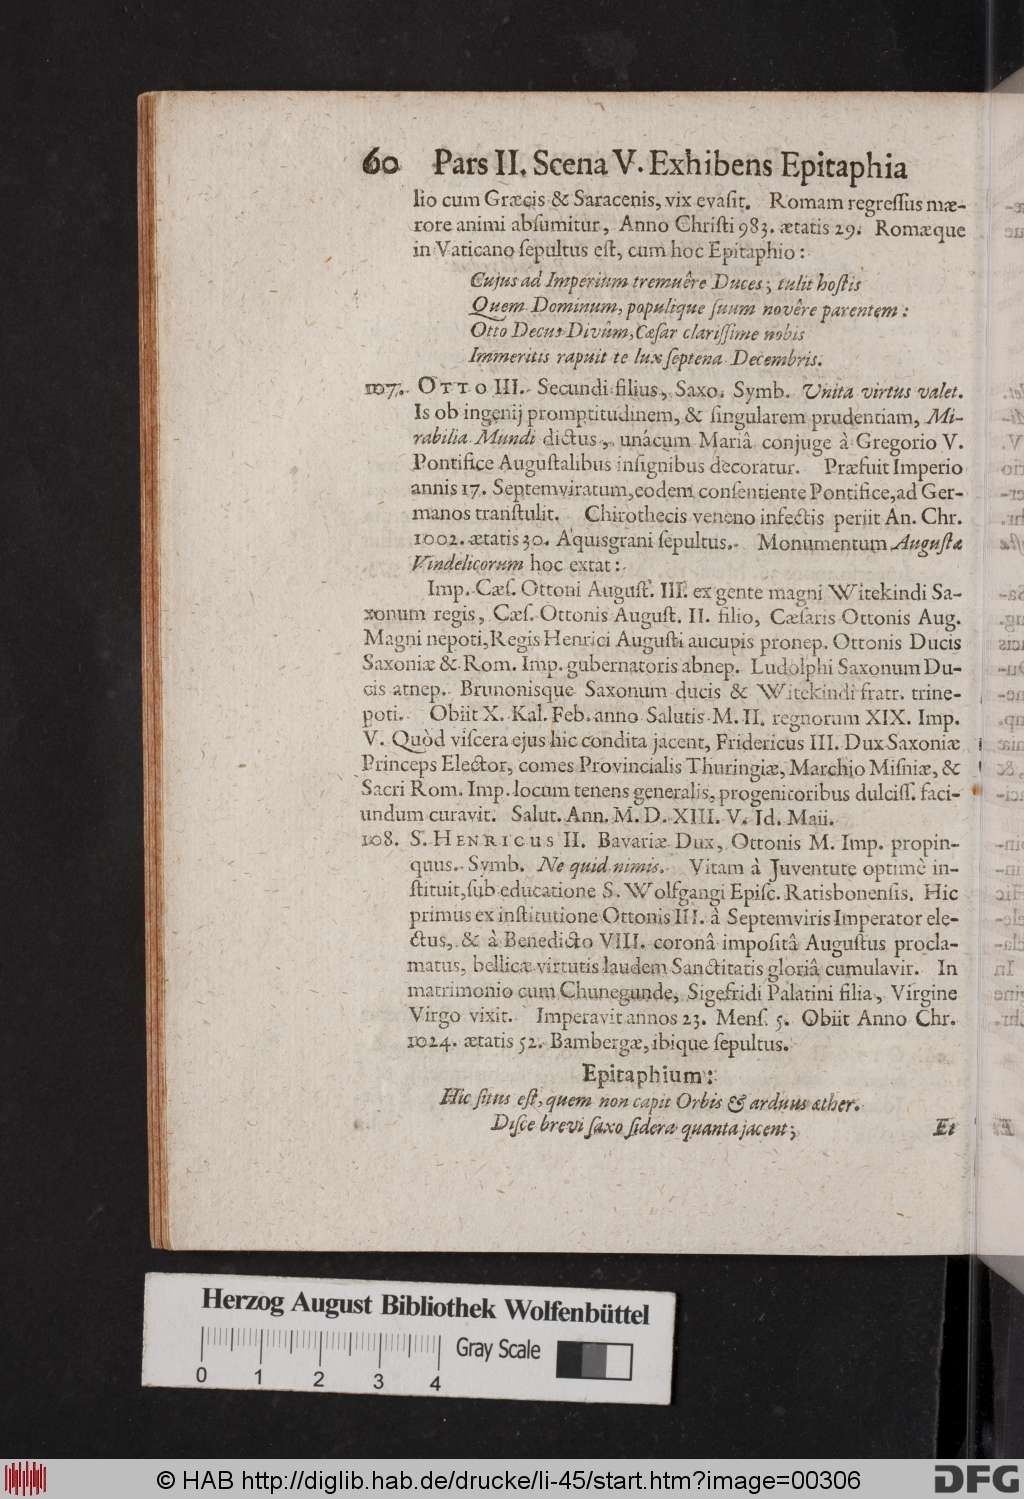 60 Pars II. Scena V. Exhibens Epitaphia
lio cum Græcis & Saracenis, vix evaſit. Romam regreſſus mæ-
rore animi abſumitur, Anno Chriſti 983. ætatis 29. Romæque
in Vaticano ſepultus eſt, cum hoc Epitaphio:
Cujus ad Imperium tremuêre Duces; tulit hoſtis
Quem Dominum, populique ſuum novêre parentem:
Otto Decus Divûm, Cæſar clariſſime nobis
Immeritis rapuit te lux ſeptena Decembris.
107. OTTO III. Secundi filius, Saxo. Symb. Unita virtus valet.
Is ob ingenij promptitudinem, & ſingularem prudentiam, Mi-
rabilia Mundi dictus, unácum Mariâ conjuge à Gregorio V.
Pontifice Auguſtalibus inſignibus decoratur. Præfuit Imperio
annis 17. Septemviratum, eodem conſentiente Pontifice, ad Ger-
manos tranſtulit. Chirothecis veneno infectis periit An. Chr.
1002. ætatis 30. Aquisgrani ſepultus. Monumentum Auguſtæ
Vindelicorum hoc extat:
Imp. Cæſ. Ottoni Auguſt. III. ex gente magni Witekindi Sa-
xonum regis, Cæſ. Ottonis Auguſt. II. filio, Cæſaris Ottonis Aug.
Magni nepoti, Regis Henrici Auguſti aucupis pronep. Ottonis Ducis
Saxoniæ & Rom. Imp. gubernatoris abnep. Ludolphi Saxonum Du-
cis atnep. Brunonisque Saxonum ducis & Witekindi fratr. trine-
poti. Obiit X. Kal. Feb. anno Salutis M. II. regnorum XIX. Imp.
V. Quòd viſcera ejus hic condita jacent, Fridericus III. Dux Saxoniæ
Princeps Elector, comes Provincialis Thuringiæ, Marchio Miſniæ, &
Sacri Rom. Imp. locum tenens generalis, progenitoribus dulciſſ. faci-
undum curavit. Salut. Ann. M. D. XIII. V. Id. Maii.
108. S. HENRICUS II. Bavariæ Dux, Ottonis M. Imp. propin-
quus. Symb. Ne quid nimis. Vitam à Juventute optimè in-
ſtituit, ſub educatione S. Wolfgangi Epiſc. Ratisbonenſis. Hic
primus ex inſtitutione Ottonis III. à Septemviris Imperator ele-
ctus, & à Benedicto VIII. coronâ impoſitâ Auguſtus procla-
matus, bellicæ virtutis laudem Sanctitatis gloriâ cumulavit. In
matrimonio cum Chunegunde, Sigefridi Palatini filia, Virgine
Virgo vixit. Imperavit annos 23. Menſ. 5. Obiit Anno Chr.
1024. ætatis 52. Bambergæ, ibique ſepultus.
Epitaphium:
Hic ſitus eſt, quem non capit Orbis & arduus æther.
Diſce brevi ſaxo ſidera quanta jacent;
Et
Herzog August Bibliothek Wolfenbüttel
Gray Scale
0 1 2 3 4
© HAB http://diglib.hab.de/drucke/li-45/start.htm?image=00306
DFG